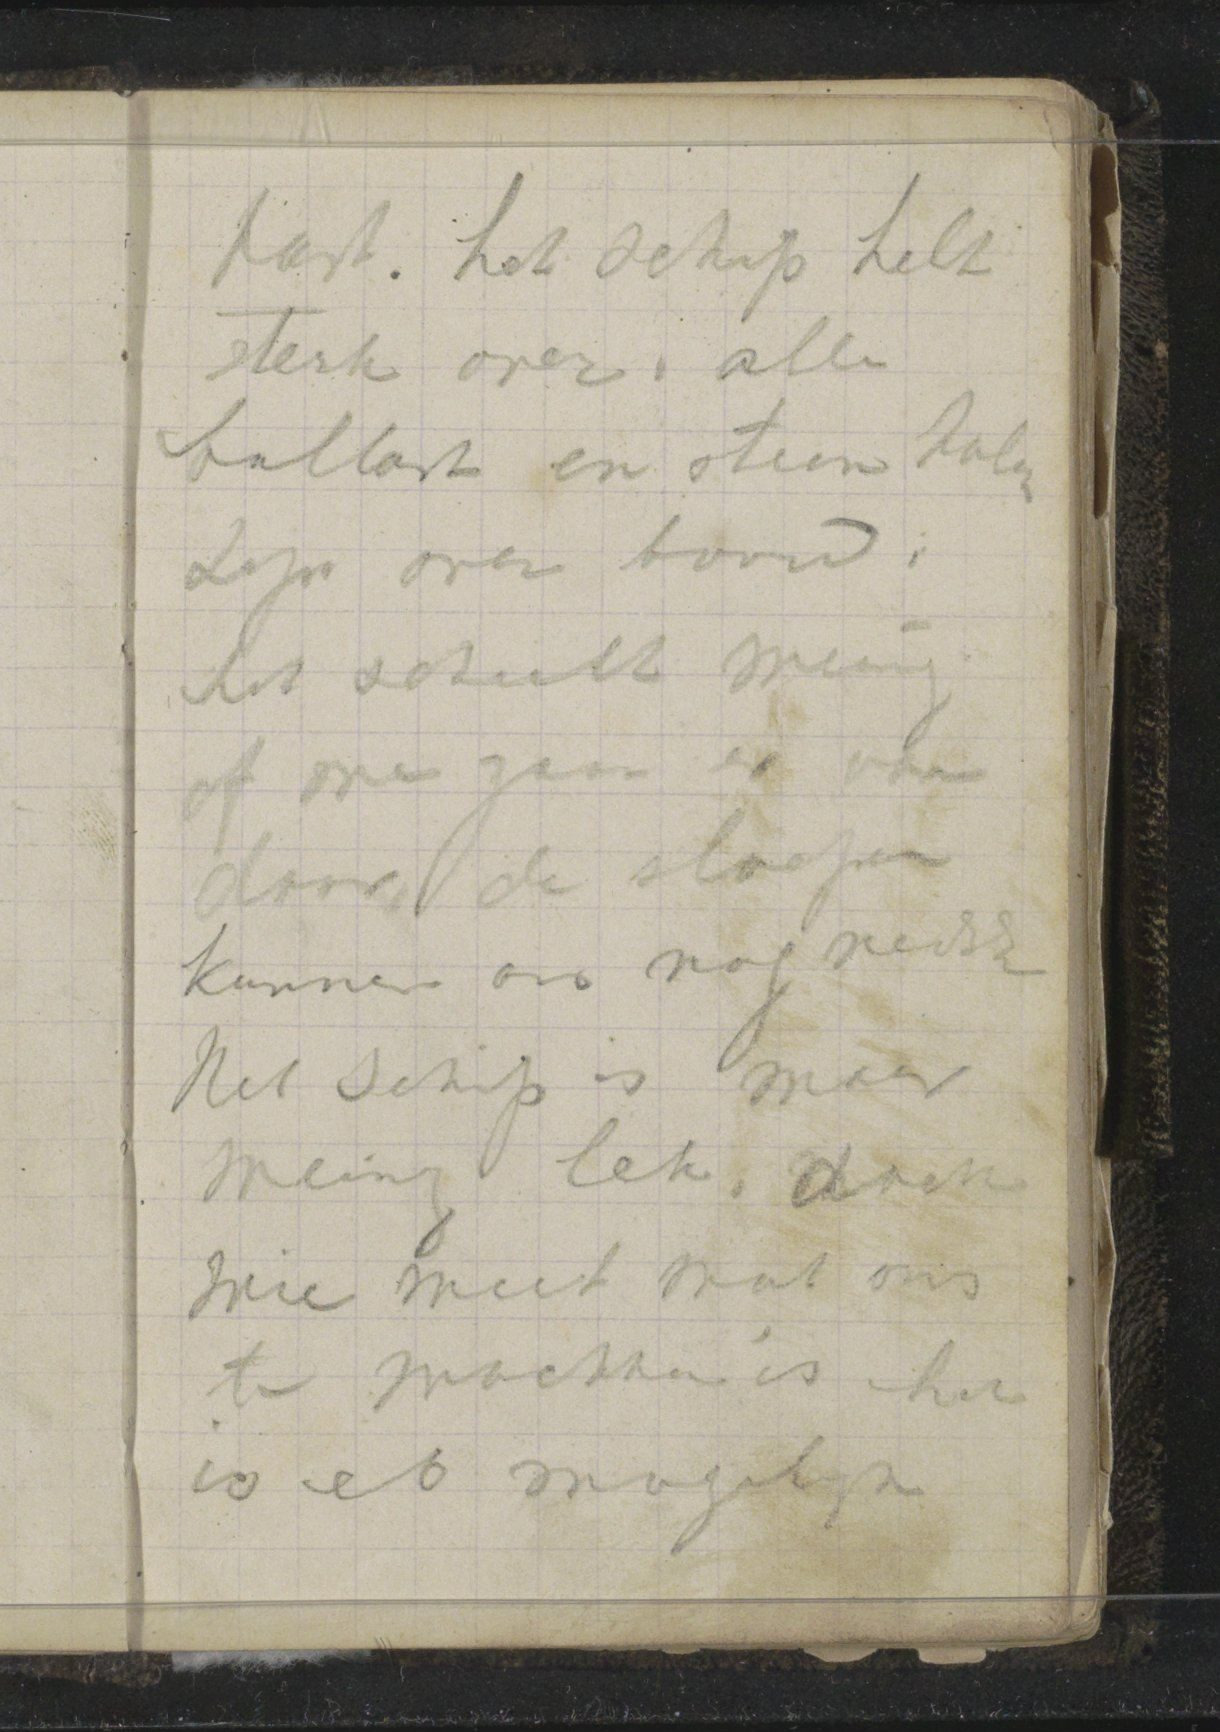 hart. het schip helt
sterk over. alle
ballast en steen kolen
zijn over boord.
het scheelt weinig
of we gaan er van
door, de sloepen
kunnen ons nog redden
Het schip is maar
weinig lek. doch
wie weet wat ons
te wachten is het
is eb mogelijk